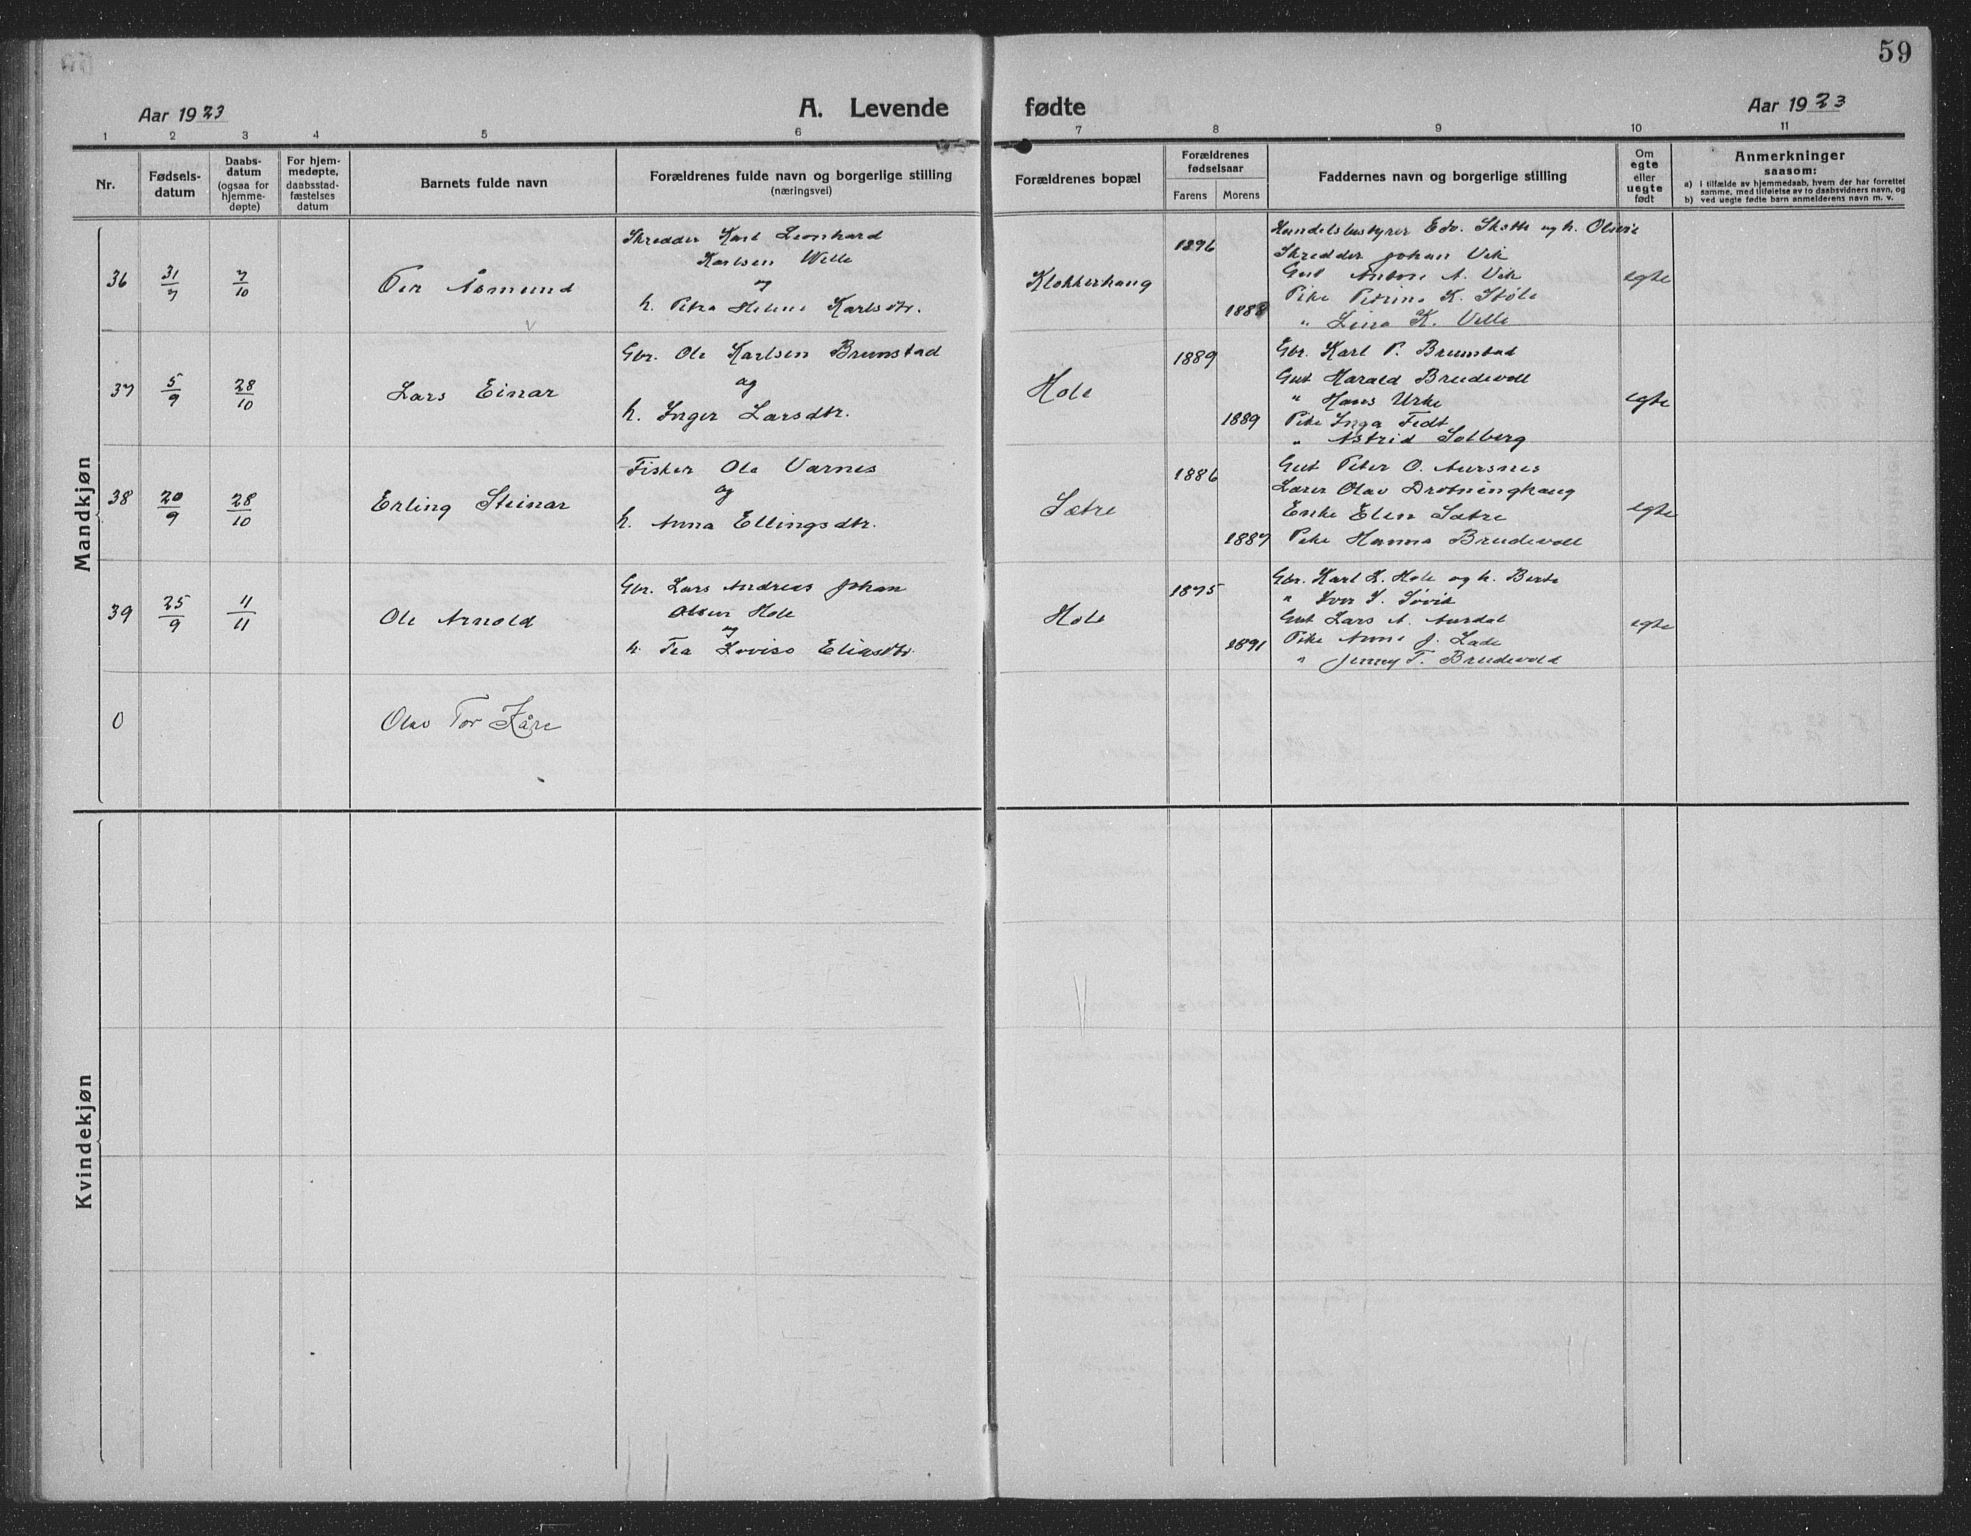 59
Aar 1923
A. Levende fødte
Aar 1923
1 2 3 4 5 6 7 8 9 10 11
Nr.
Fødsels-
datum
Daabs-
datum
(ogsaa for
hjemme-
døpte)
For hjem-
medøpte,
daabsstad-
fæstelses
datum
Barnets fulde navn
Forældrenes fulde navn og borgerlige stilling
(næringsvei)
Forældrenes bopæl
Forældrenes
fødselsaar
Farens Morens
Faddernes navn og borgerlige stilling
Om
egte
eller
uegte
født
Anmerkninger
saasom:
a) i tilfælde av hjemmedaab, hvem der har forrettet
samme, med tilføielse av to daabsvidners navn, og
b) ved uegte fødte barn anmelderens navn m. v.
Mandkjøn
36 31/7 7/10 Per Åsmund
Skredder Karl Leonhard
Karlsen Welle
og
h. Petra Helene Karlsdtr.
Klokkerhaug
1896
1888
Handelsbestyrer Edv. Skotte og h. Olivie
Skredder Johan Vik
Gut Anton A. Vik
Pike Petrine K. Støle
" Lina K. Velle
egte
37 5/9 28/10 Lars Einar
Gbr. Ole Karlsen Brunstad
og
h. Inger Larsdtr.
Hole
1889
1889
Gbr. Karl P. Brunstad
Gut Harald Brudevoll
" Hans Urke
Pike Inga Fedt
" Astrid Solberg
egte
38 20/9 28/10 Erling Steinar
Fisker Ole Varnes
og
h. Anna Ellingsdtr.
Sætre
1886
1887
Gut Peter O. Aursnes
Lærer Olav Drotninghaug
Enke Elen Sætre
Pike Hanna Brudevoll
egte
39 25/9 11/11 Ole Arnold
Gbr. Lars Andreas Johan
Olsen Hole
og
h. Tea Lovise Eliasdtr.
Hole
1875
1891
Gbr. Karl L. Hole og h. Berte
" Iver I. Søvik
Gut Lars A. Aurdal
Pike Anne J. Lade
" Jenny T. Brudevold
egte
0 Olav Tor Kåre
Kvindekjøn